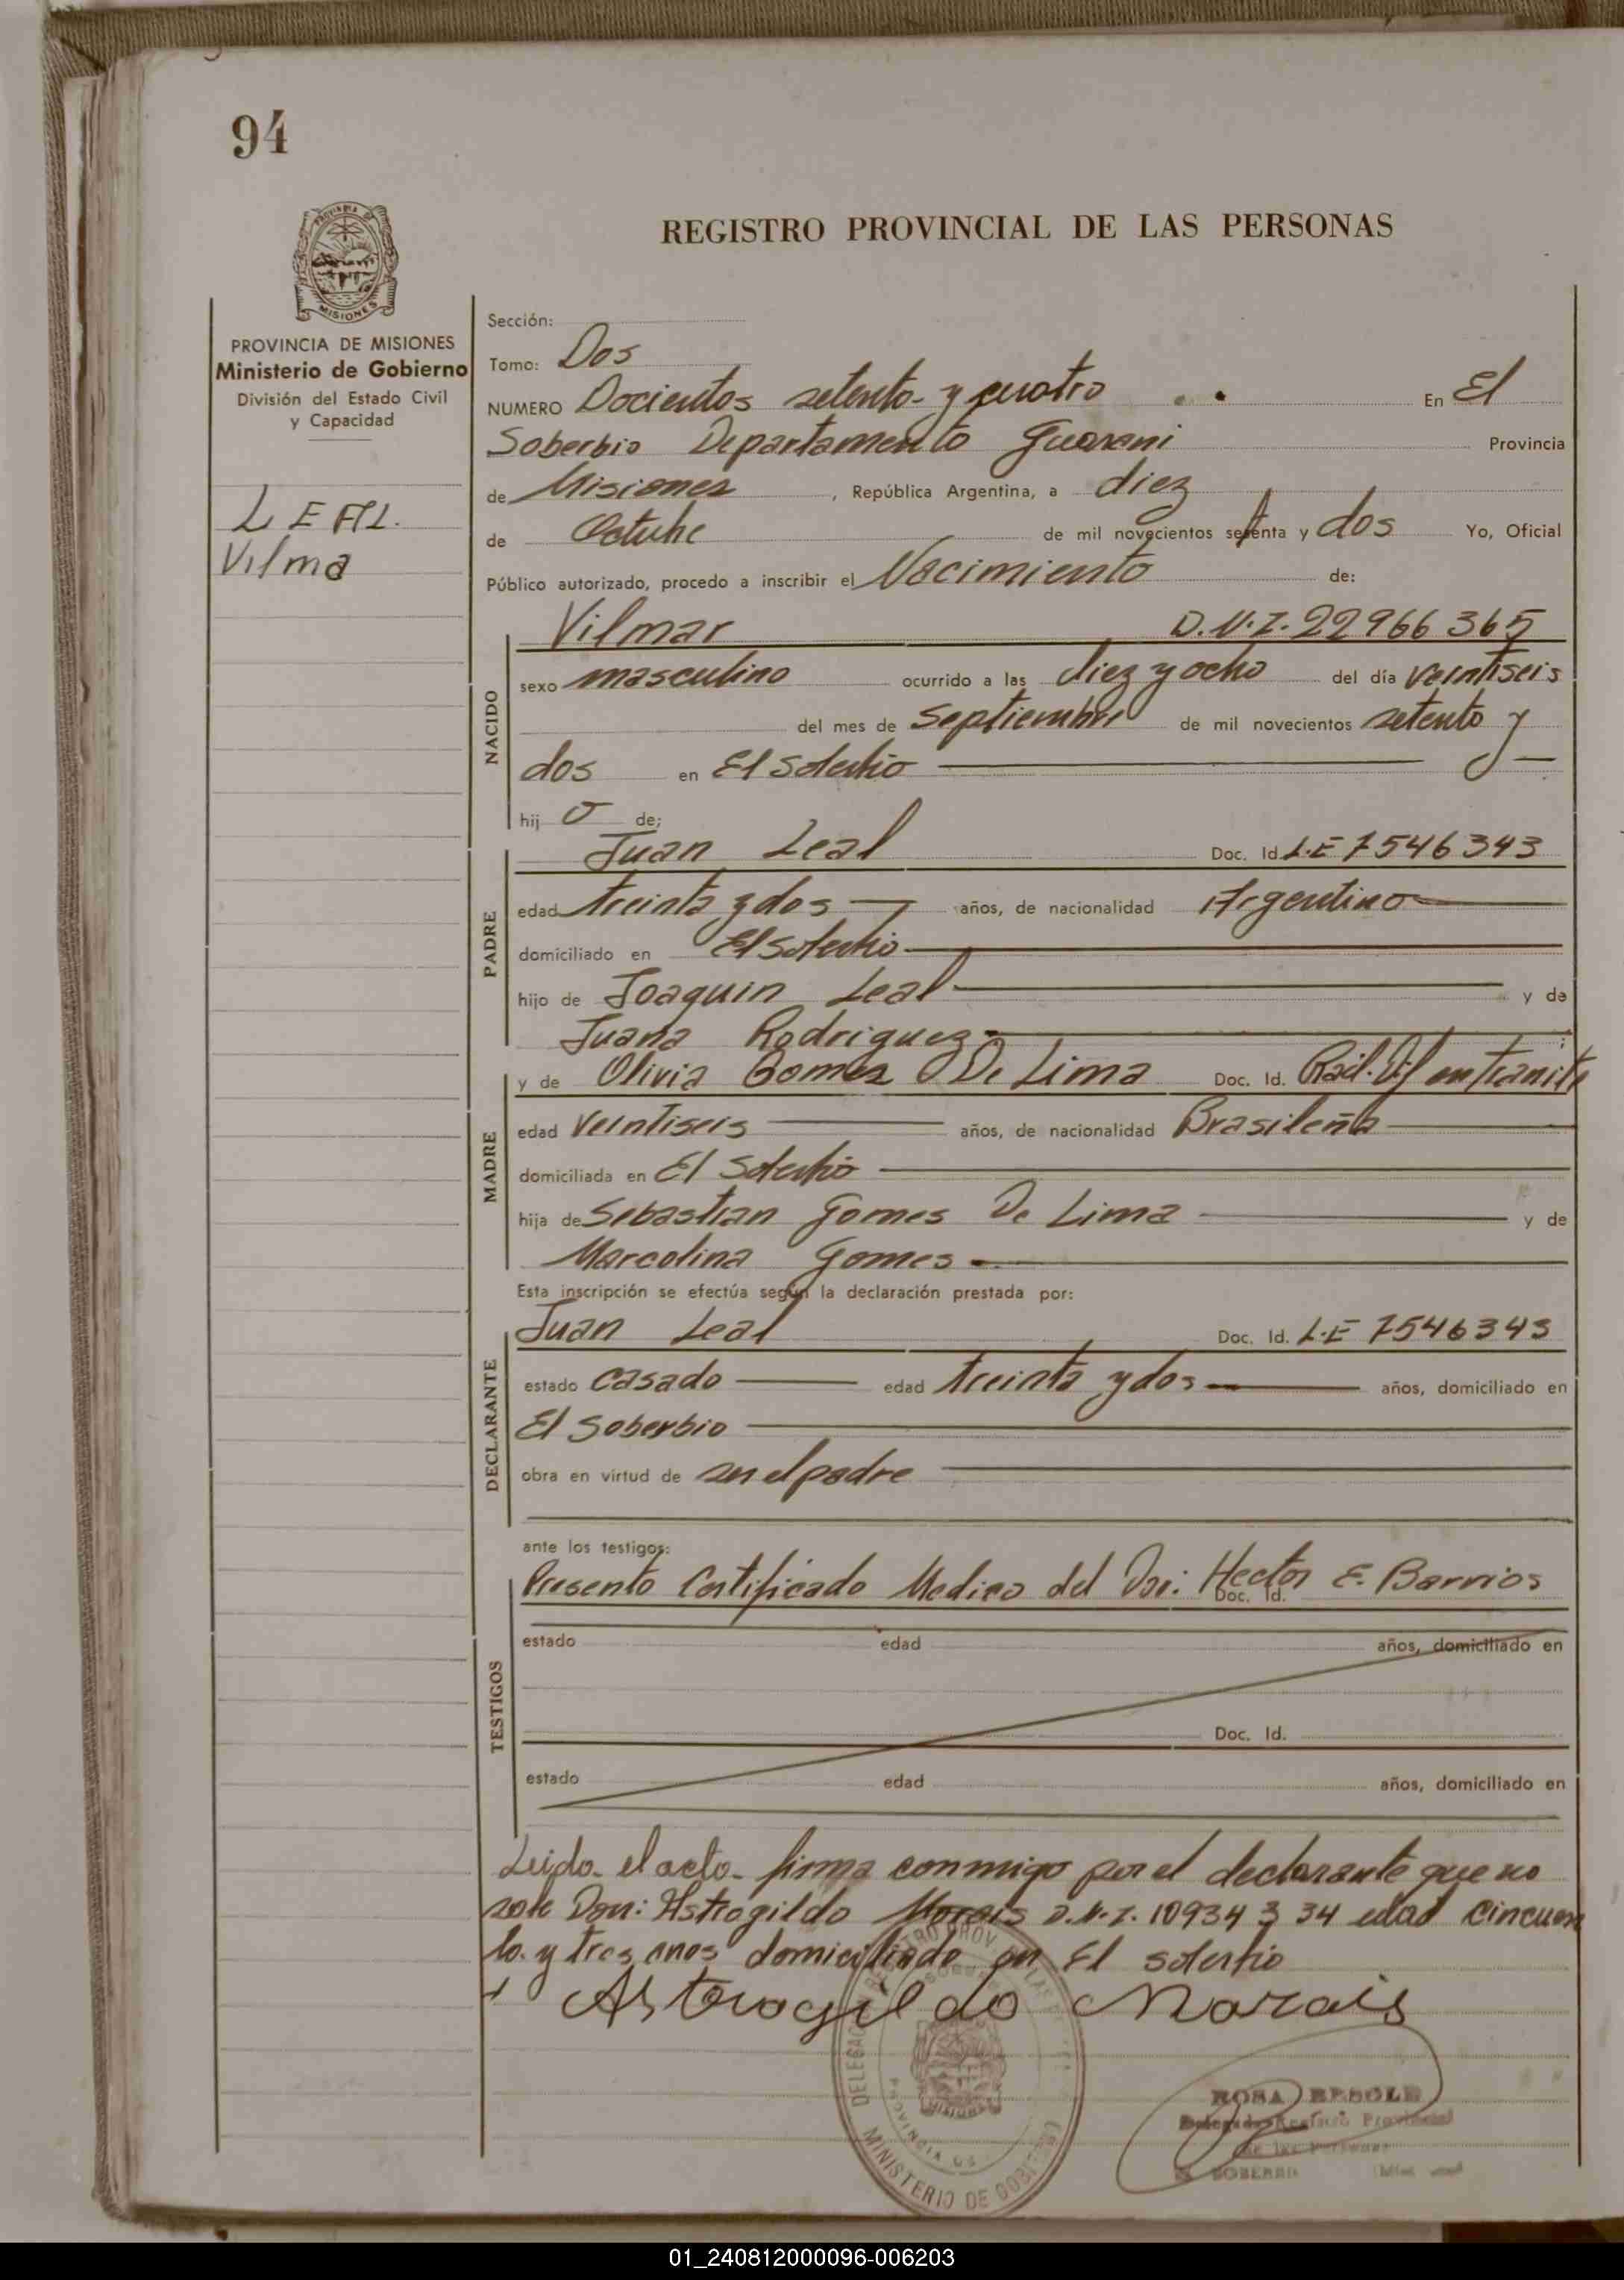 94
REGISTRO PROVINCIAL DE LAS PERSONAS
MISIONES
PROVINCIA DE MISIONES
Ministerio de Gobierno
División del Estado Civil
y Capacidad
LEAL.
Vilma
Sección:
Tomo: Dos
NUMERO Docientos setenta y cuatro En El
Soberbio Departamento Guarani Provincia
de Misiones, República Argentina, a diez
de Octubre de mil novecientos setenta y dos Yo, Oficial
Público autorizado, procedo a inscribir el Nacimiento de:
NACIDO
Vilmar D.N.I. 22966365
sexo masculino ocurrido a las diez y ocho del día veintiseis
del mes de Septiembre de mil novecientos setenta y
dos en El Soberbio
hij o de:
PADRE
Juan Leal Doc. Id. L.E 7546343
edad treinta y dos años, de nacionalidad Argentino
domiciliado en El Soberbio
hijo de Joaquin Leal y de
Juana Rodriguez ;
MADRE
y de Olivia Gomes De Lima Doc. Id. Rad. Dif en Tramite
edad veintiseis años, de nacionalidad Brasileña
domiciliada en El Soberbio
hija de Sebastian Gomes De Lima y de
Marcolina Gomes
Esta inscripción se efectúa según la declaración prestada por:
DECLARANTE
Juan Leal Doc. Id. L.E 7546343
estado casado edad treinta y dos años, domiciliado en
El Soberbio
obra en virtud de ser el padre
ante los testigos:
TESTIGOS
Presento Certificado Medico del Dr: Hector E. Barrios
Doc. Id.
estado edad años, domiciliado en
Doc. Id.
estado edad años, domiciliado en
Leido el acta firma conmigo por el declarante que no
sabe Don: Astrogildo Morais D.N.I. 10934334 edad cincuen
ta y tres anos domiciliado en El Soberbio
Astrogildo Morais
MINISTERIO DE GOBIERNO
PROVINCIA DE
MISIONES
ROSA
Delegada Registro Provincial
de las Personas
SOBERBIO
01_240812000096-006203